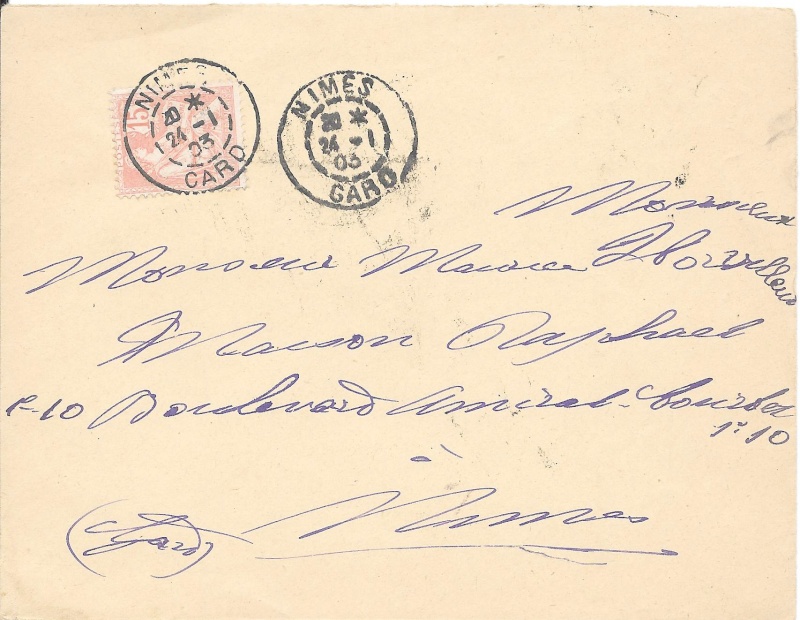 NIMES
24 - 1
03
GARD
15
NIMES
24 - 1
03
GARD
Monsieur
Monsieur Maurice
Maison Raphael
10 Boulevard Amiral Courbet
n° 10
à
Nimes
(Gard)